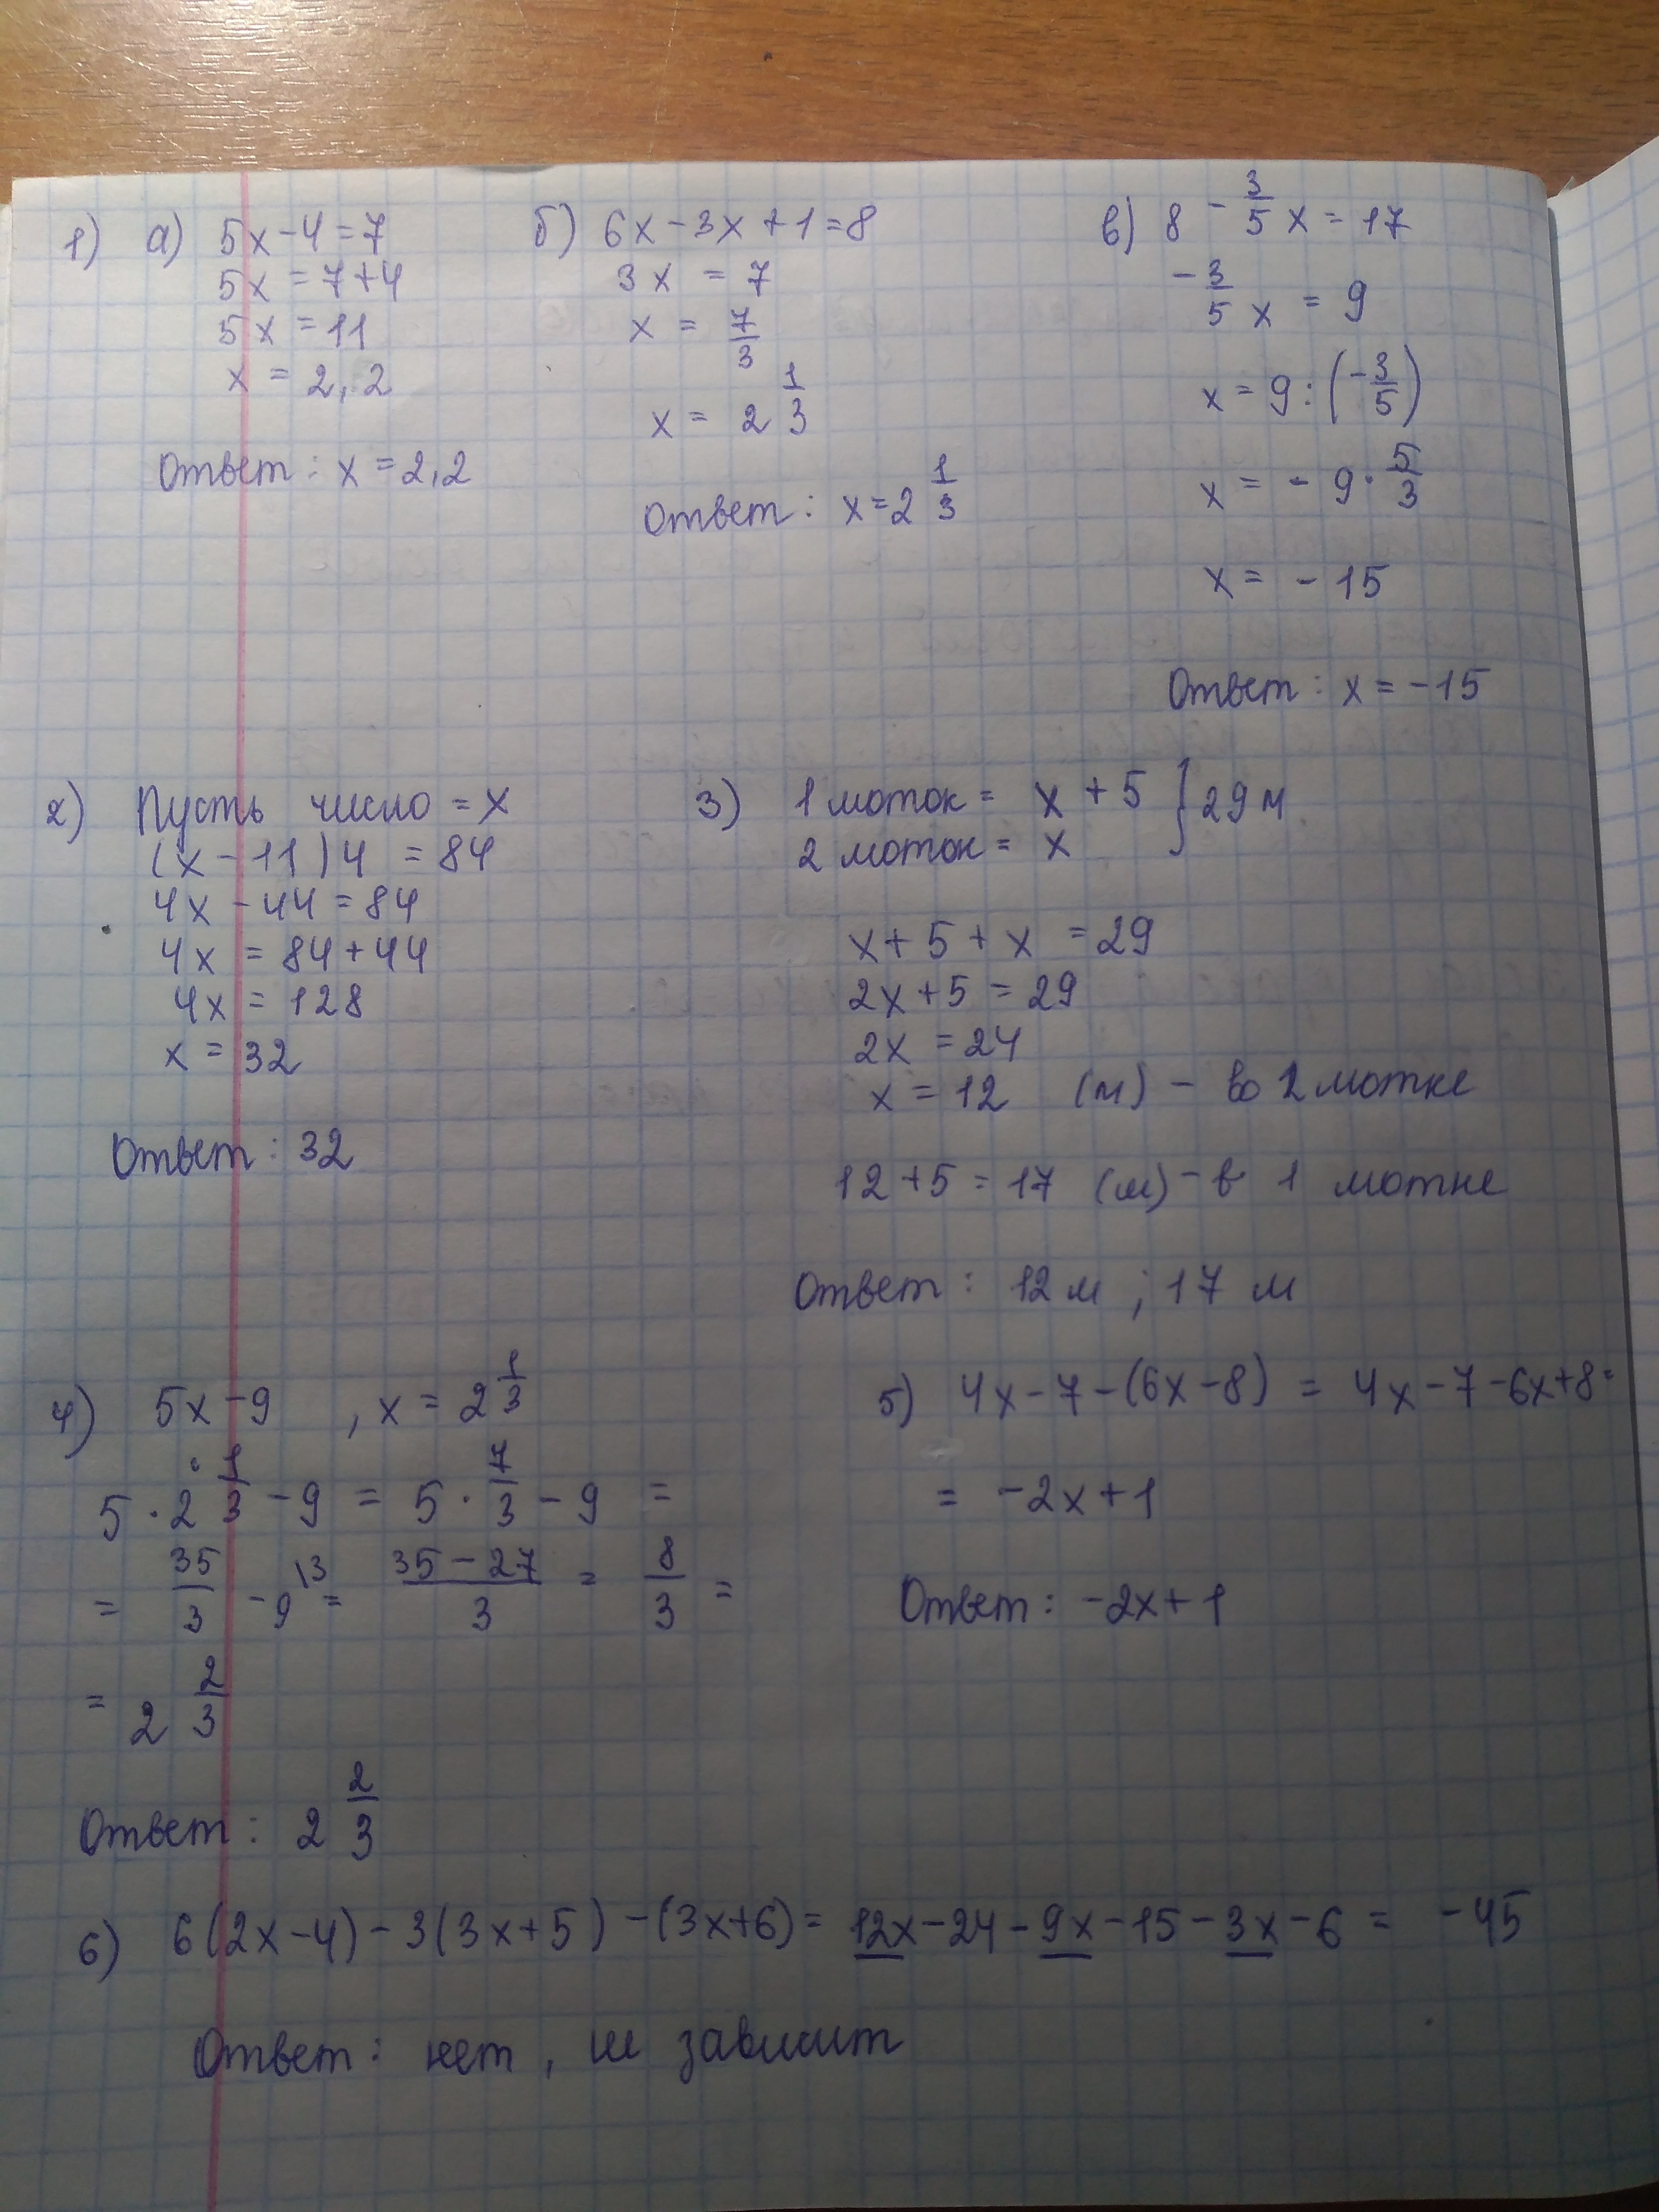 1) а) 5x-4=7
5x=7+4
5x=11
x=2,2
Ответ: x=2,2
б) 6x-3x+1=8
3x=7
x=7/3
x=2 1/3
Ответ: x=2 1/3
в) 8-3/5x=17
-3/5x=9
x=9:(-3/5)
x=-9·5/3
x=-15
Ответ: x=-15
2) Пусть число = x
(x-11)4=84
4x-44=84
4x=84+44
4x=128
x=32
Ответ: 32
3) 1 моток = x+5 } 29 м
2 моток = x
x+5+x=29
2x+5=29
2x=24
x=12 (м) - во 2 мотке
12+5=17 (м) - в 1 мотке
Ответ: 12 м; 17 м
4) 5x-9, x=2 1/3
5·2 1/3-9=5·7/3-9=
=35/3-9\3=(35-27)/3=8/3=
=2 2/3
Ответ: 2 2/3
5) 4x-7-(6x-8)=4x-7-6x+8=
=-2x+1
Ответ: -2x+1
6) 6(2x-4)-3(3x+5)-(3x+6)=12x-24-9x-15-3x-6=-45
Ответ: нет, не зависит